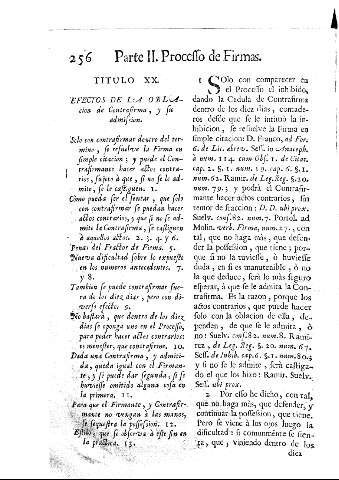 256 Parte II. Processo de Firmas.
TITULO XX.
EFECTOS DE LA OBLA-
cion de Contrafirma, y su
admision.
Solo con contrafirmar dentro del ter-
mino, se resuelve la Firma en
simple citacion; y puede el Con-
trafirmante hacer actos contra-
rios, sujeto à que, si no se le ad-
mite, se le castiguen. 1.
Como pueda ser el sentar, que solo
con contrafirmar se puedan hacer
actos contrarios, y que si no se ad-
mite la Contrafirma, se castiguen
à aquellos actos. 2. 3. 4. y 6.
Penas del Fractor de Firma. 5.
Nueva dificultad sobre lo expuesto
en los numeros antecedentes. 7.
y 8.
Tambien se puede contrafirmar fue-
ra de los diez dias, pero con di-
verso efecto. 9.
No bastarà, que dentro de los diez
dias se oponga uno en el Processo,
para poder hacer actos contrarios
es menester, que contrafirme. 10.
Dada una Contrafirma, y admiti-
da, queda igual con el Firman-
te, y si puede dar segunda, si se
huviesse omitido alguna cosa en
la primera. 11.
Para que el Firmante, y Contrafir-
mante no vengan à las manos,
se sequestra la possession. 12.
Estilo, que se observa à este fin en
la practica. 13.
1 SOlo con comparecer en
el Processo el inhibido,
dando la Cedula de Contrafirma
dentro de los diez dias, contade-
ros desde que se le intimò la in-
hibicion, se resuelve la Firma en
simple citacion: D. Franco, ad For.
6. de Lic. abrev. Sess. in Anaceph.
à num. 114. cum Obs. 1. de Citat.
cap. 2. §. 1. num. 19. cap. 6. §. 1.
num. 62. Ramir. de Leg. Reg. §. 20.
num. 79. 3 y podrà el Contrafir-
mante hacer actos contrarios, sin
temor de fraccion: D. D. ubi proxè.
Suelv. consf. 82. num. 7. Portol. ad
Molin. verb. Firma, num. 27., con
tal, que no haga màs, que defen-
der la possession, que tiene; por-
que si no la tuviesse, ò huviesse
duda, en si es manutenible, ò no
la que deduce, serà lo màs seguro
esperar, à què se le admita la Con-
trafirma. Es la razon, porque los
actos contrarios, que puede hacer
solo con la oblacion de ella, de-
penden, de que se le admita, ò
no: Suelv. consf. 82. num. 8. Rami-
rez, de Leg. Reg. §. 20. num. 67.
Sess. de Inhib. cap. 6. §. 1. num. 80. 3
y si no se le admite, serà castiga-
do el que los hizo: Ramir. Suelv.
Sess. ubi prox.
2 Por esso he dicho, con tal,
que no haga màs, que defender, y
continuar la possession, que tiene.
Pero se viene à los ojos luego la
dificultad: si comunmente se sien-
ta, que, viniendo dentro de los
diez